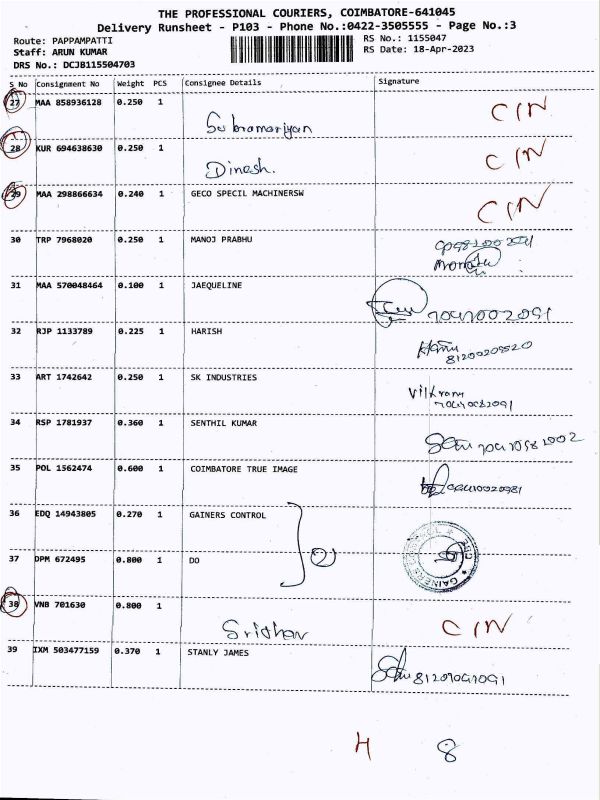 THE PROFESSIONAL COURIERS, COIMBATORE-641045
Delivery Runsheet - P103 - Phone No.:0422-3505555 - Page No.:3
Route: PAPPAMPATTI RS No.: 1155047
Staff: ARUN KUMAR RS Date: 18-Apr-2023
DRS No.: DCJB115504703
S No Consignment No Weight PCS Consignee Details Signature
27 MAA 858936128 0.250 1
Subramaniyan CIN
28 KUR 694638630 0.250 1
Dinesh. CIN
29 MAA 298866634 0.240 1 GECO SPECIL MACHINERSW CIN
30 TRP 7968020 0.250 1 MANOJ PRABHU
31 MAA 570048464 0.100 1 JAEQUELINE
32 RJP 1133789 0.225 1 HARISH
8120020520
33 ART 1742642 0.250 1 SK INDUSTRIES
Vikram
34 RSP 1781937 0.360 1 SENTHIL KUMAR
35 POL 1562474 0.600 1 COIMBATORE TRUE IMAGE
36 EDQ 14943805 0.270 1 GAINERS CONTROL
37 DPM 672495 0.800 1 DO 2
38 VNB 701630 0.800 1
Sridhar CIN
39 IXM 503477159 0.370 1 STANLY JAMES
H 8